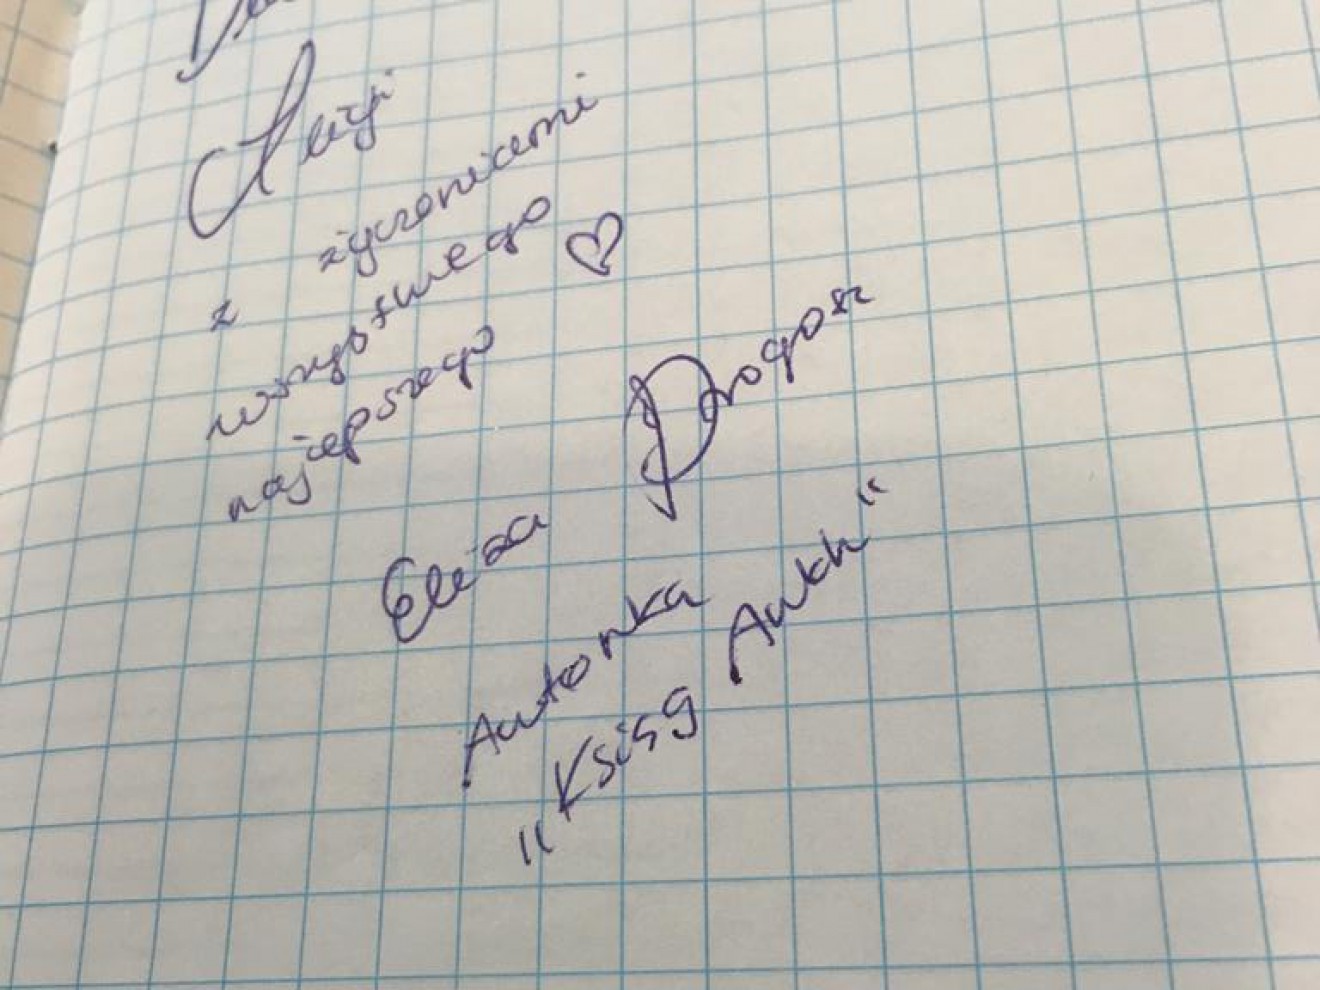 z życzeniami
wszystkiego
najlepszego
Eliza Drogosz
Autorka
"Ksiąg Ankh"